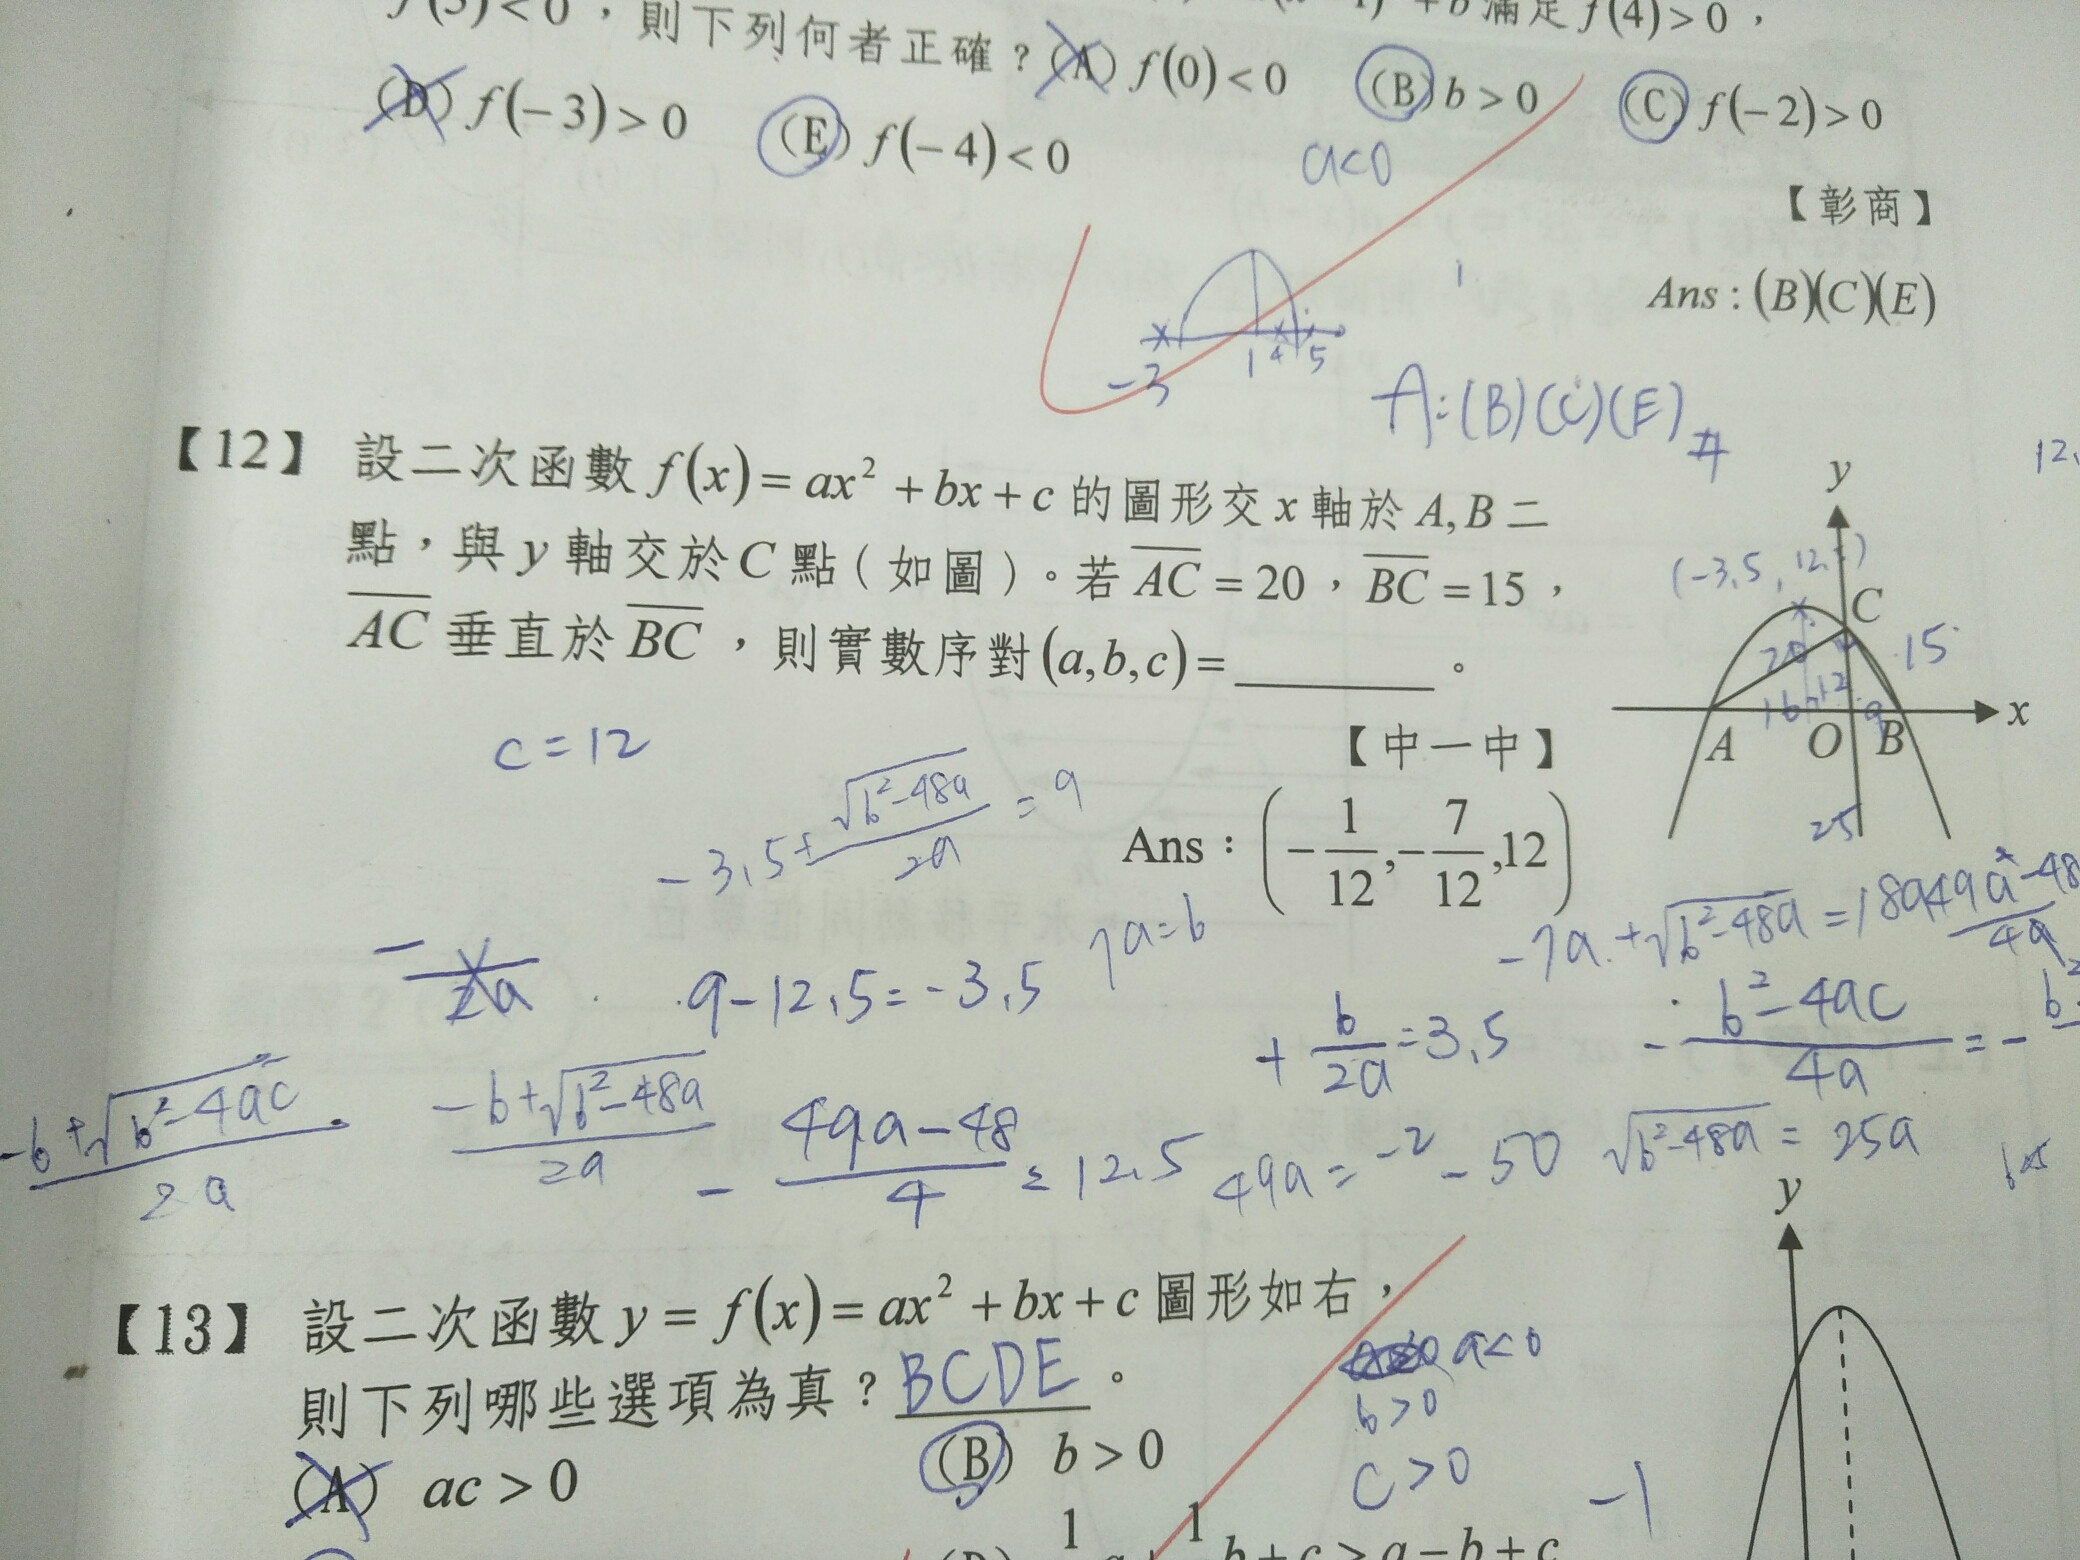 f(5)<0，則下列何者正確？(A) f(0)<0 (B) b>0 (C) f(-2)>0
+b 滿足 f(4)>0，
(D) f(-3)>0 (E) f(-4)<0
a<0
【彰商】
Ans：(B)(C)(E)
-3 1 4 5
A:(B)(C)(E)#
【12】 設二次函數 f(x)=ax²+bx+c 的圖形交 x 軸於 A,B 二
點，與 y 軸交於 C 點（如圖）。若 AC=20，BC=15，
AC 垂直於 BC，則實數序對 (a,b,c)=______。
y
C
15
20
16 12 9
A O B x
25
【中一中】
Ans：(-1/12,-7/12,12)
c=12
-3.5+√(b²-48a)/2a=9
7a=b
-7a+√(b²-48a)=18a
9-12.5=-3.5
+b/2a=3.5
-(b²-4ac)/4a=-
(-b+√(b²-4ac))/2a
(-b+√(b²-48a))/2a
-(49a-48)/4=12.5
49a=-2-50
√(b²-48a)=25a
y
【13】 設二次函數 y=f(x)=ax²+bx+c 圖形如右，
則下列哪些選項為真？BCDE。
a<0
b>0
c>0
(A) ac>0 (B) b>0
-1
b+c>a-b+c